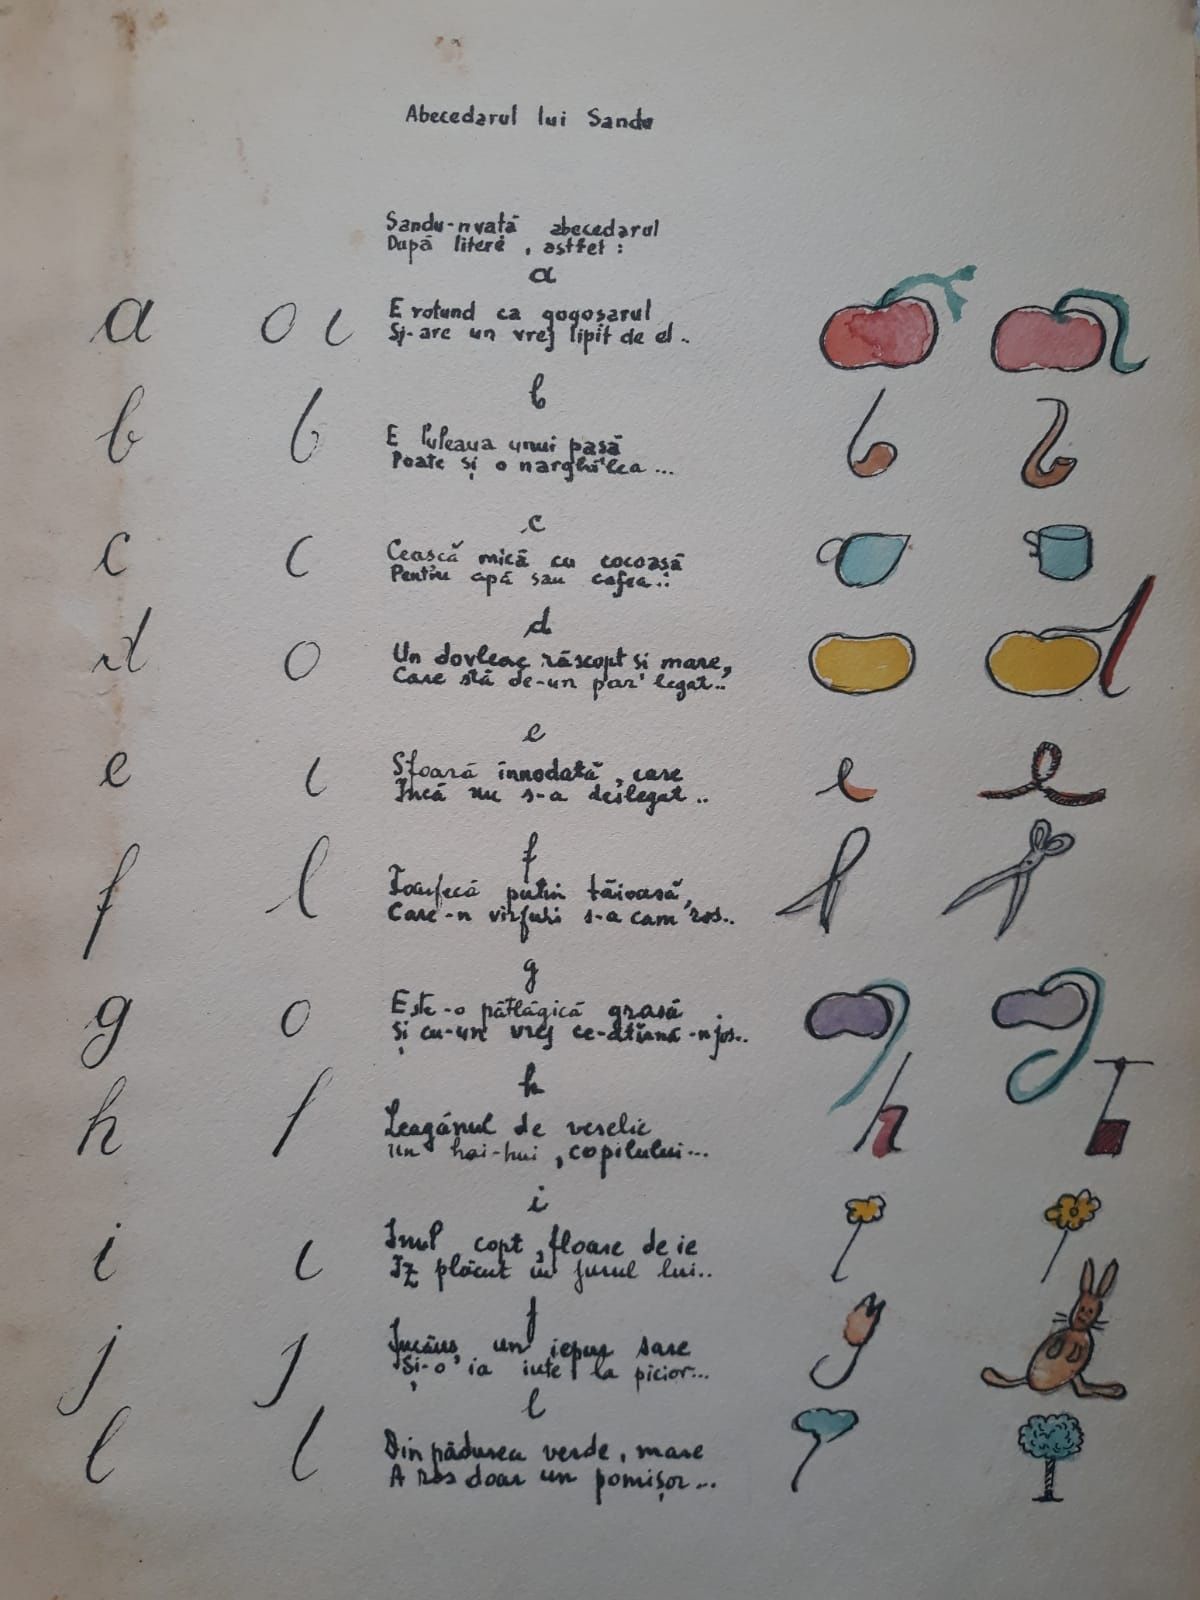 Abecedarul lui Sandu
Sandu-nvață abecedarul
După litere, astfel:
a
a o ι E rotund ca gogoșarul
Și-are un vrej lipit de el..
b
b b E luleaua unui pașă
Poate și o narghilea...
c
c c Cească mică cu cocoașă
Pentru apă sau cafea..
d
d o Un dovleac răscopt și mare,
Care stă de-un par legat..
e
e ι Sfoară înnodată, care
Încă nu s-a deslegat..
f
f l Foarfecă puțin tăioasă,
Care-n vîrfuri s-a cam ros..
g
g o Este-o pătlăgică grasă
Și cu-un vrej ce-atîrnă-n jos..
h
h l Leagănul de veselie
Un hai-hui, copilului...
i
i ι Inul copt, floare de ie
plăcut în jurul lui..
j
j j Jucăuș un iepur sare
Și-o ia iute la picior...
l
l l Din pădurea verde, mare
A ros doar un pomișor...